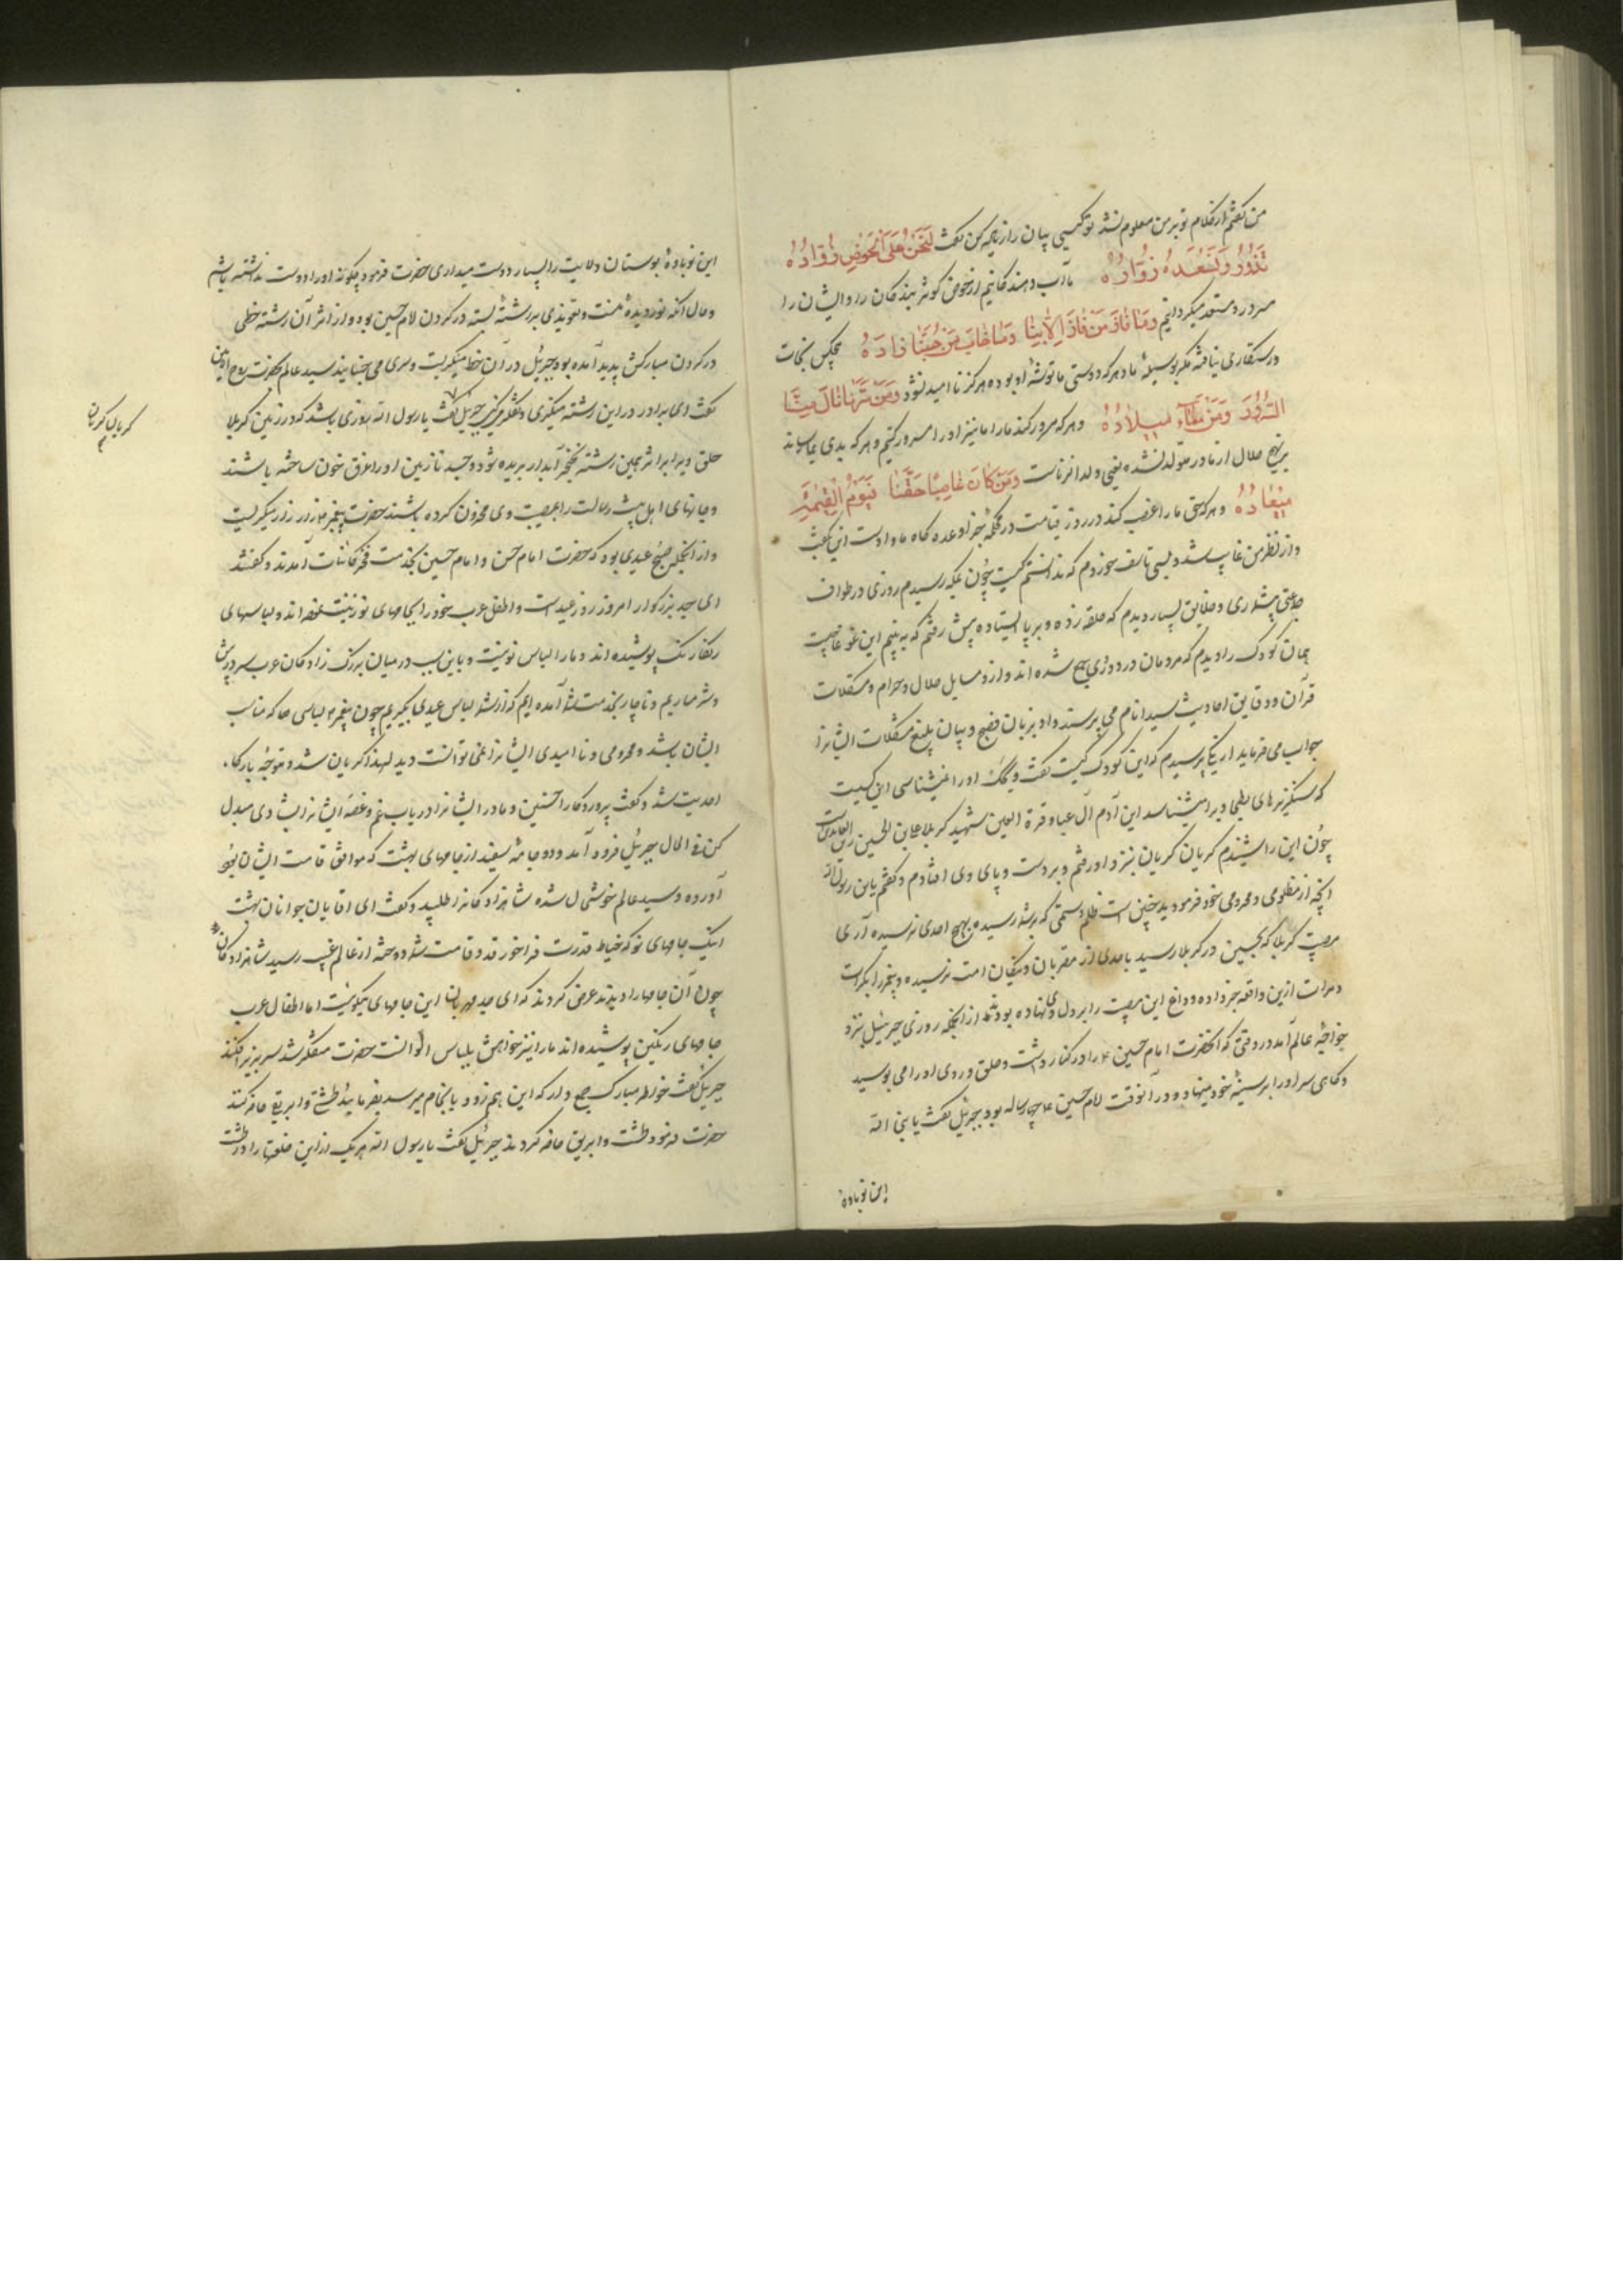 من گفتم از کلام تو بر من معلوم نشد تو کیستی بیان را زیاده کن گفت لَنَحْنُ عَلَی الْحَوْضِ رُوَّادُهُ
نَذُودُ وَ نُسْعِدُ وُرَّادُهُ ما آب دهندگانیم از حوض کوثر بندگان را و ایشان را
مسرور و مستعد میگردانیم وَمَا فَازَ مَنْ فَازَ اِلَّا بِنَا وَمَا خَابَ مَنْ حُبُّنَا زَادُهُ هیچکس نجات
و رستگاری نیافته مگر بوسیلهٔ ما و هر که دوستی ما توشهٔ او بوده هرگز نا امید نشود وَمَنْ سَرَّنَا نَالَ مِنَّا
السُّرُورَ وَمَنْ سَاءَنَا سَاءَ مِیلَادُهُ و هر که مسرور کند ما را ما نیز او را مسرور کنیم و هر که بدی بما رساند
بر نهج حلال از مادر متولد نشده یعنی ولد الزناست وَمَنْ کَانَ غَاصِبًا حَقَّنَا فَیَوْمُ الْقِیٰمَةِ
مِیْعَادُهُ و هر که حق ما را غصب کند در روز قیامت در محکمهٔ جزا وعده گاه ما و اوست این گفت
و از نظر من غایب شد و بسی تاسف خوردم که ندانستم کیست چون بمکه رسیدم روزی در طواف
جماعتی بیشماری و خلایق بسیار دیدم که حلقه زده و بر پا ایستاده پیش رفتم که به بینم این غوغا چیست
همان کودک را دیدم که مردمان در دور وی جمع شده اند و از و مسایل حلال و حرام و مشکلات
قرآن و دقایق احادیث سید انام می پرسند و او بزبان فصیح و بیان بلیغ مشکلات ایشانرا
جواب می فرماید از یکی پرسیدم که این کودک کیست گفت ویحک او را نمیشناسی این کسیست
که سنگریزهای بطحا ویرا میشناسد این آدم آل عبا و قرة العین شهید کربلا علی بن الحسین زین العابدین است
چون این را شنیدم گریان گریان بنزد او رفتم و بر دست و پای وی افتادم و گفتم یابن رسول الله
آنچه از مظلومی و محرومی خود فرمودید چنین است ظلم و ستمی که بر شما رسیده بهیچ احدی نرسیده آری
مصیبت کربلا که بحسین در کربلا رسید باحدی از مقربان و نیکان امت نرسیده و پیغمبر را بکرات
و مرات ازین واقعه خبر داده و داغ این مصیبت را بر دل وی نهاده بودند از انجمله روزی جبرئیل بنزد
خواجهٔ عالم آمد در وقتی که آنحضرت امام حسین ع را در کنار داشت و حلق و روی او را می بوسید
و گاهی سر او را بر سینهٔ خود مینهاد و در آنوقت امام حسین ع چهار ساله بود جبرئیل گفت یا نبی الله
این نوباوه
این نوباوهٔ بوستان ولایت را بسیار دوست میداری حضرت فرمود چگونه او را دوست نداشته باشم
و حال آنکه نور دیدهٔ منست و تعویذی بر رشتهٔ بسته در گردن امام حسین بود و از اثر آن رشته خطی
در گردن مبارکش پدید آمده بود جبرئیل در آن خط میگریست و سری می جنبانید سید عالم بحضرت روح الامین
گفت ای برادر در این رشته مینگری و تفکر میکنی جبرئیل گفت یا رسول الله روزی باشد که در زمین کربلا
حلق ویرا برابر همین رشته بخنجر آبدار بریده شود و جسد نازنین او را غرق خون ساخته باشند
و جانهای اهل بیت رسالت را بمصیبت وی محزون کرده باشند حضرت پیغمبر ص زار زار میگریست
گریان گریان
و از انجمله صبح عیدی بود که حضرت امام حسن و امام حسین بخدمت فخر کائنات آمدند و گفتند
ای جد بزرگوار امروز روز عیدست و اطفال عرب خود را بجامهای نو زینت نموده اند و لباسهای
رنگارنگ پوشیده اند و ما را لباس نو نیست و باین سبب در میان بزرگ زادگان عرب سر در پیش
و شرمساریم و ناچار بخدمت شما آمده ایم که از شما لباس عیدی بگیریم چون پیغمبر ص لباسی حاکه مناسب
ایشان باشد و محرومی و نا امیدی ایشانرا نمی توانست دید لهذا گریان شد و متوجه بارگاه
احدیت شد و گفت پروردگارا حسنین و مادر ایشانرا دریاب و غم و غصهٔ ایشانرا بشادی مبدل
کن فی الحال جبرئیل فرود آمد و دو جامهٔ سفید از جامهای بهشت که موافق قامت ایشان بود
آورده و سید عالم خوشحال شده شاهزادگانرا طلبید و گفت ای آقایان جوانان بهشت
اینک جامهای نو که خیاط قدرت فراخور قد و قامت شما دوخته از عالم غیب رسید شاهزادگان
چون آن جامها را دیدند عرض کردند که ای جد مهربان این جامهای نیکوئیست اما اطفال عرب
جامهای رنگین پوشیده اند ما را نیز خواهش بلباس الوانست حضرت متفکر شد سر بزیر افکند
جبرئیل گفت خواطر مبارک جمع دار که این هم زود بانجام میرسد بفرمایید طشتی و ابریقی حاضر کنند
حضرت فرمود طشت و ابریق حاضر کردند جبرئیل گفت یا رسول الله هر یک از این خلعتها را در طشت